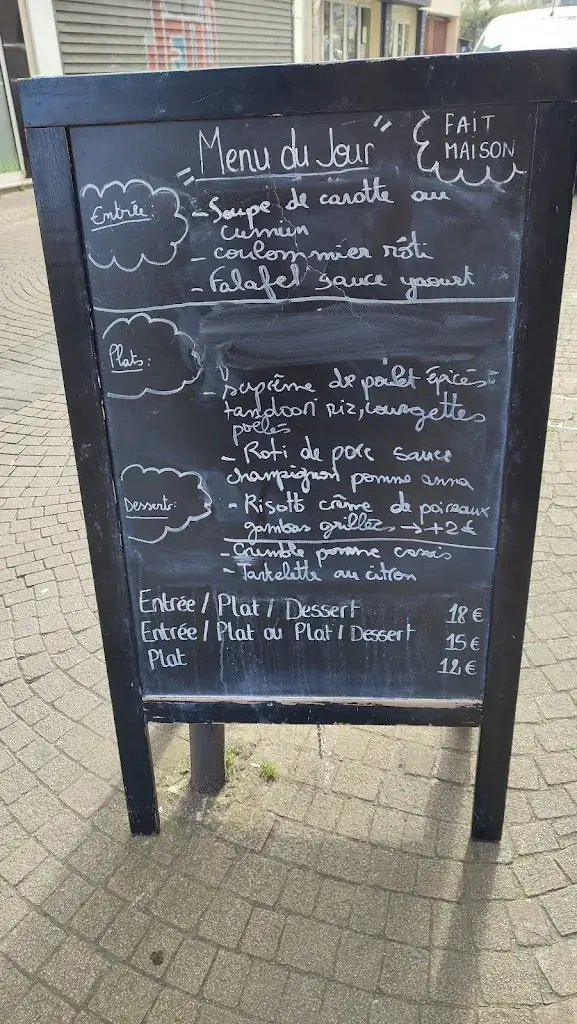 "Menu du Jour"
FAIT
MAISON
Entrée:
- Soupe de carotte au
cumin
- coulommier rôti
- Falafel sauce yaourt
Plats:
- suprême de poulet épicés
tandoori riz, courgettes
poêlés
- Roti de porc sauce
champignon pomme anna
- Risotto crème de poireaux
gambas grillées → +2€
Dessert:
- Crumble pomme cassis
- Tartelette au citron
Entrée / Plat / Dessert 18€
Entrée / Plat ou Plat / Dessert 15€
Plat 12€